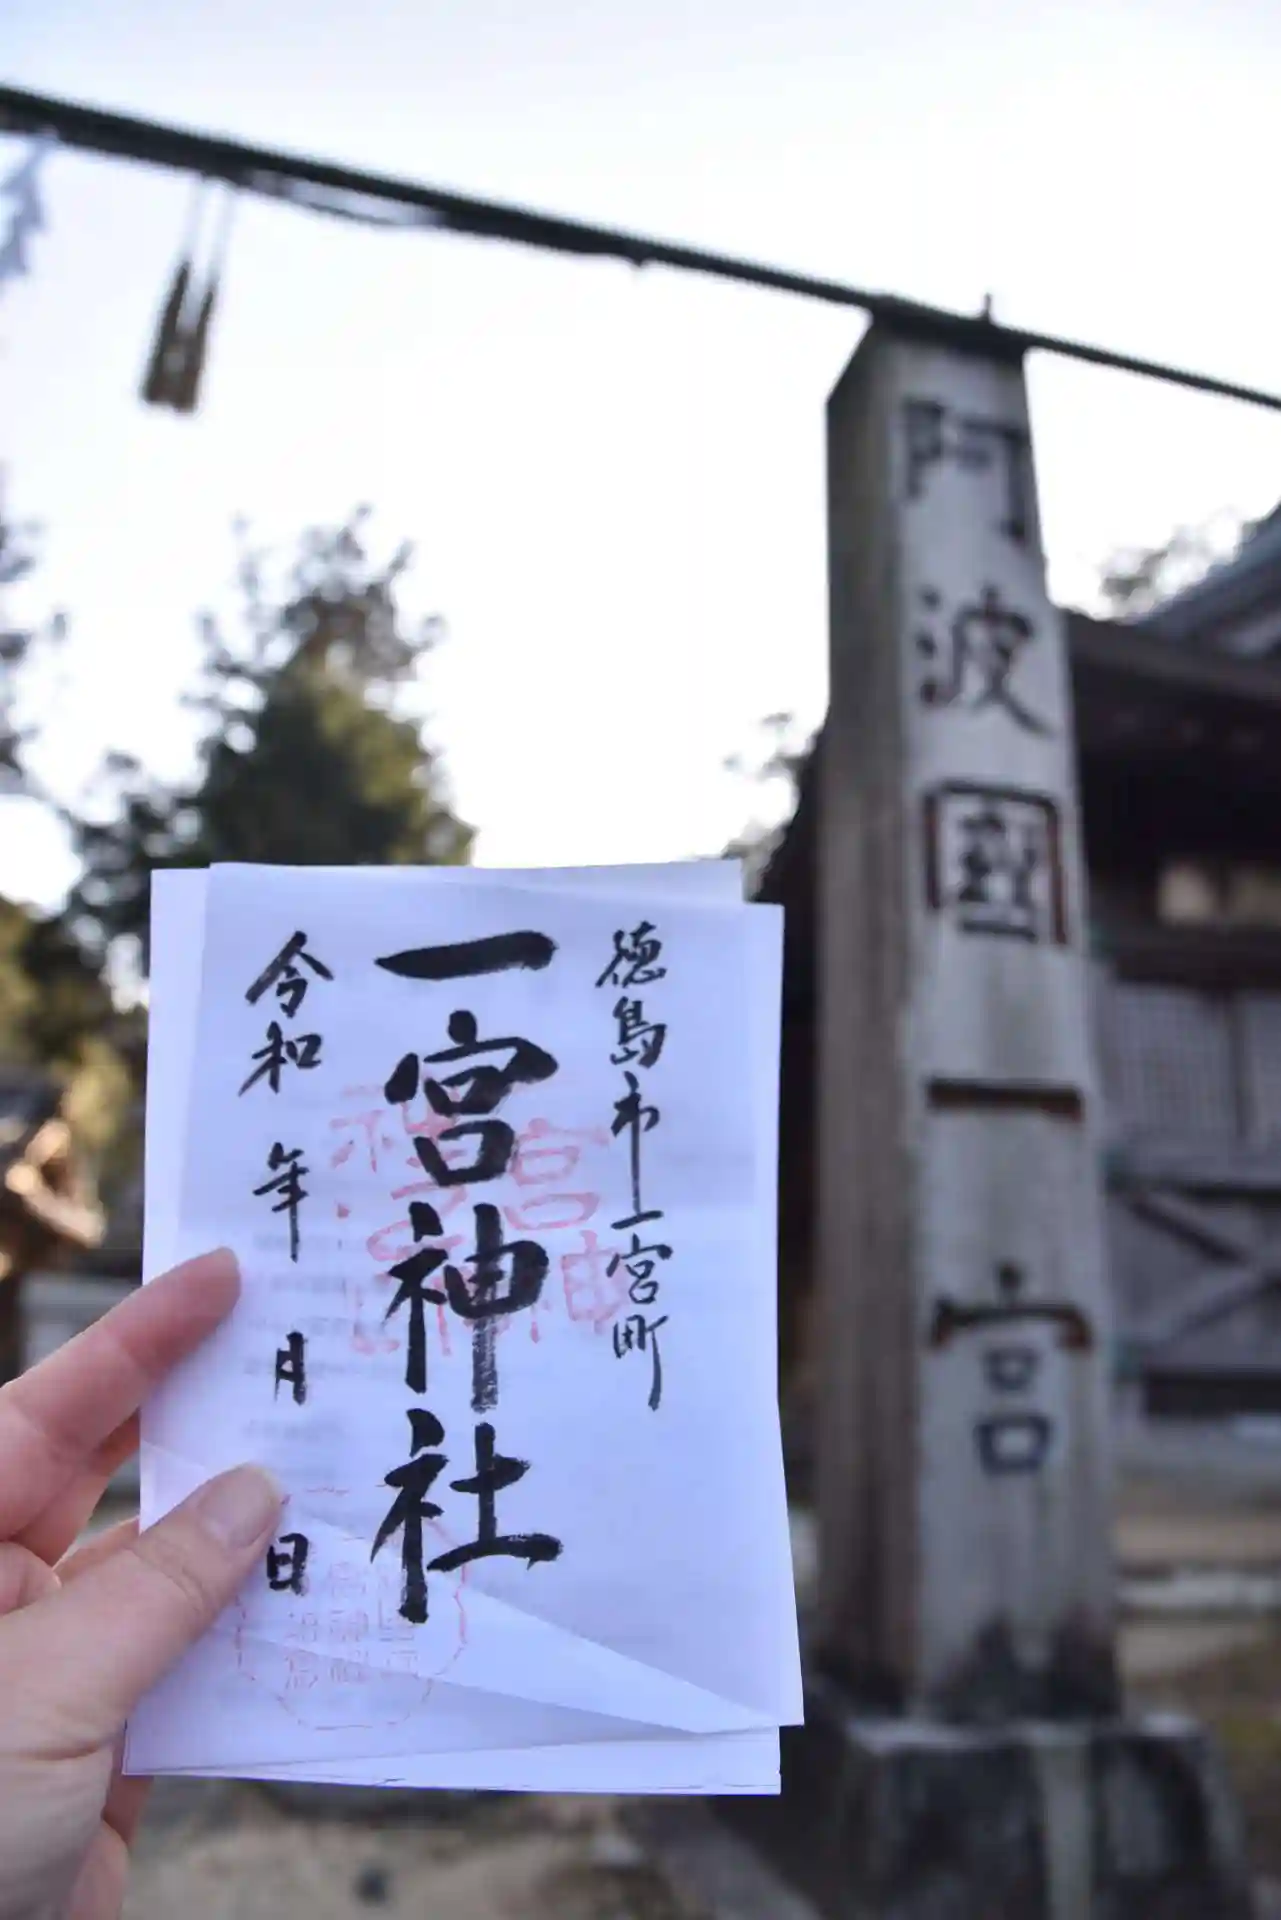 阿波國一宮
徳島市一宮町
一宮神社
令和 年 月 日